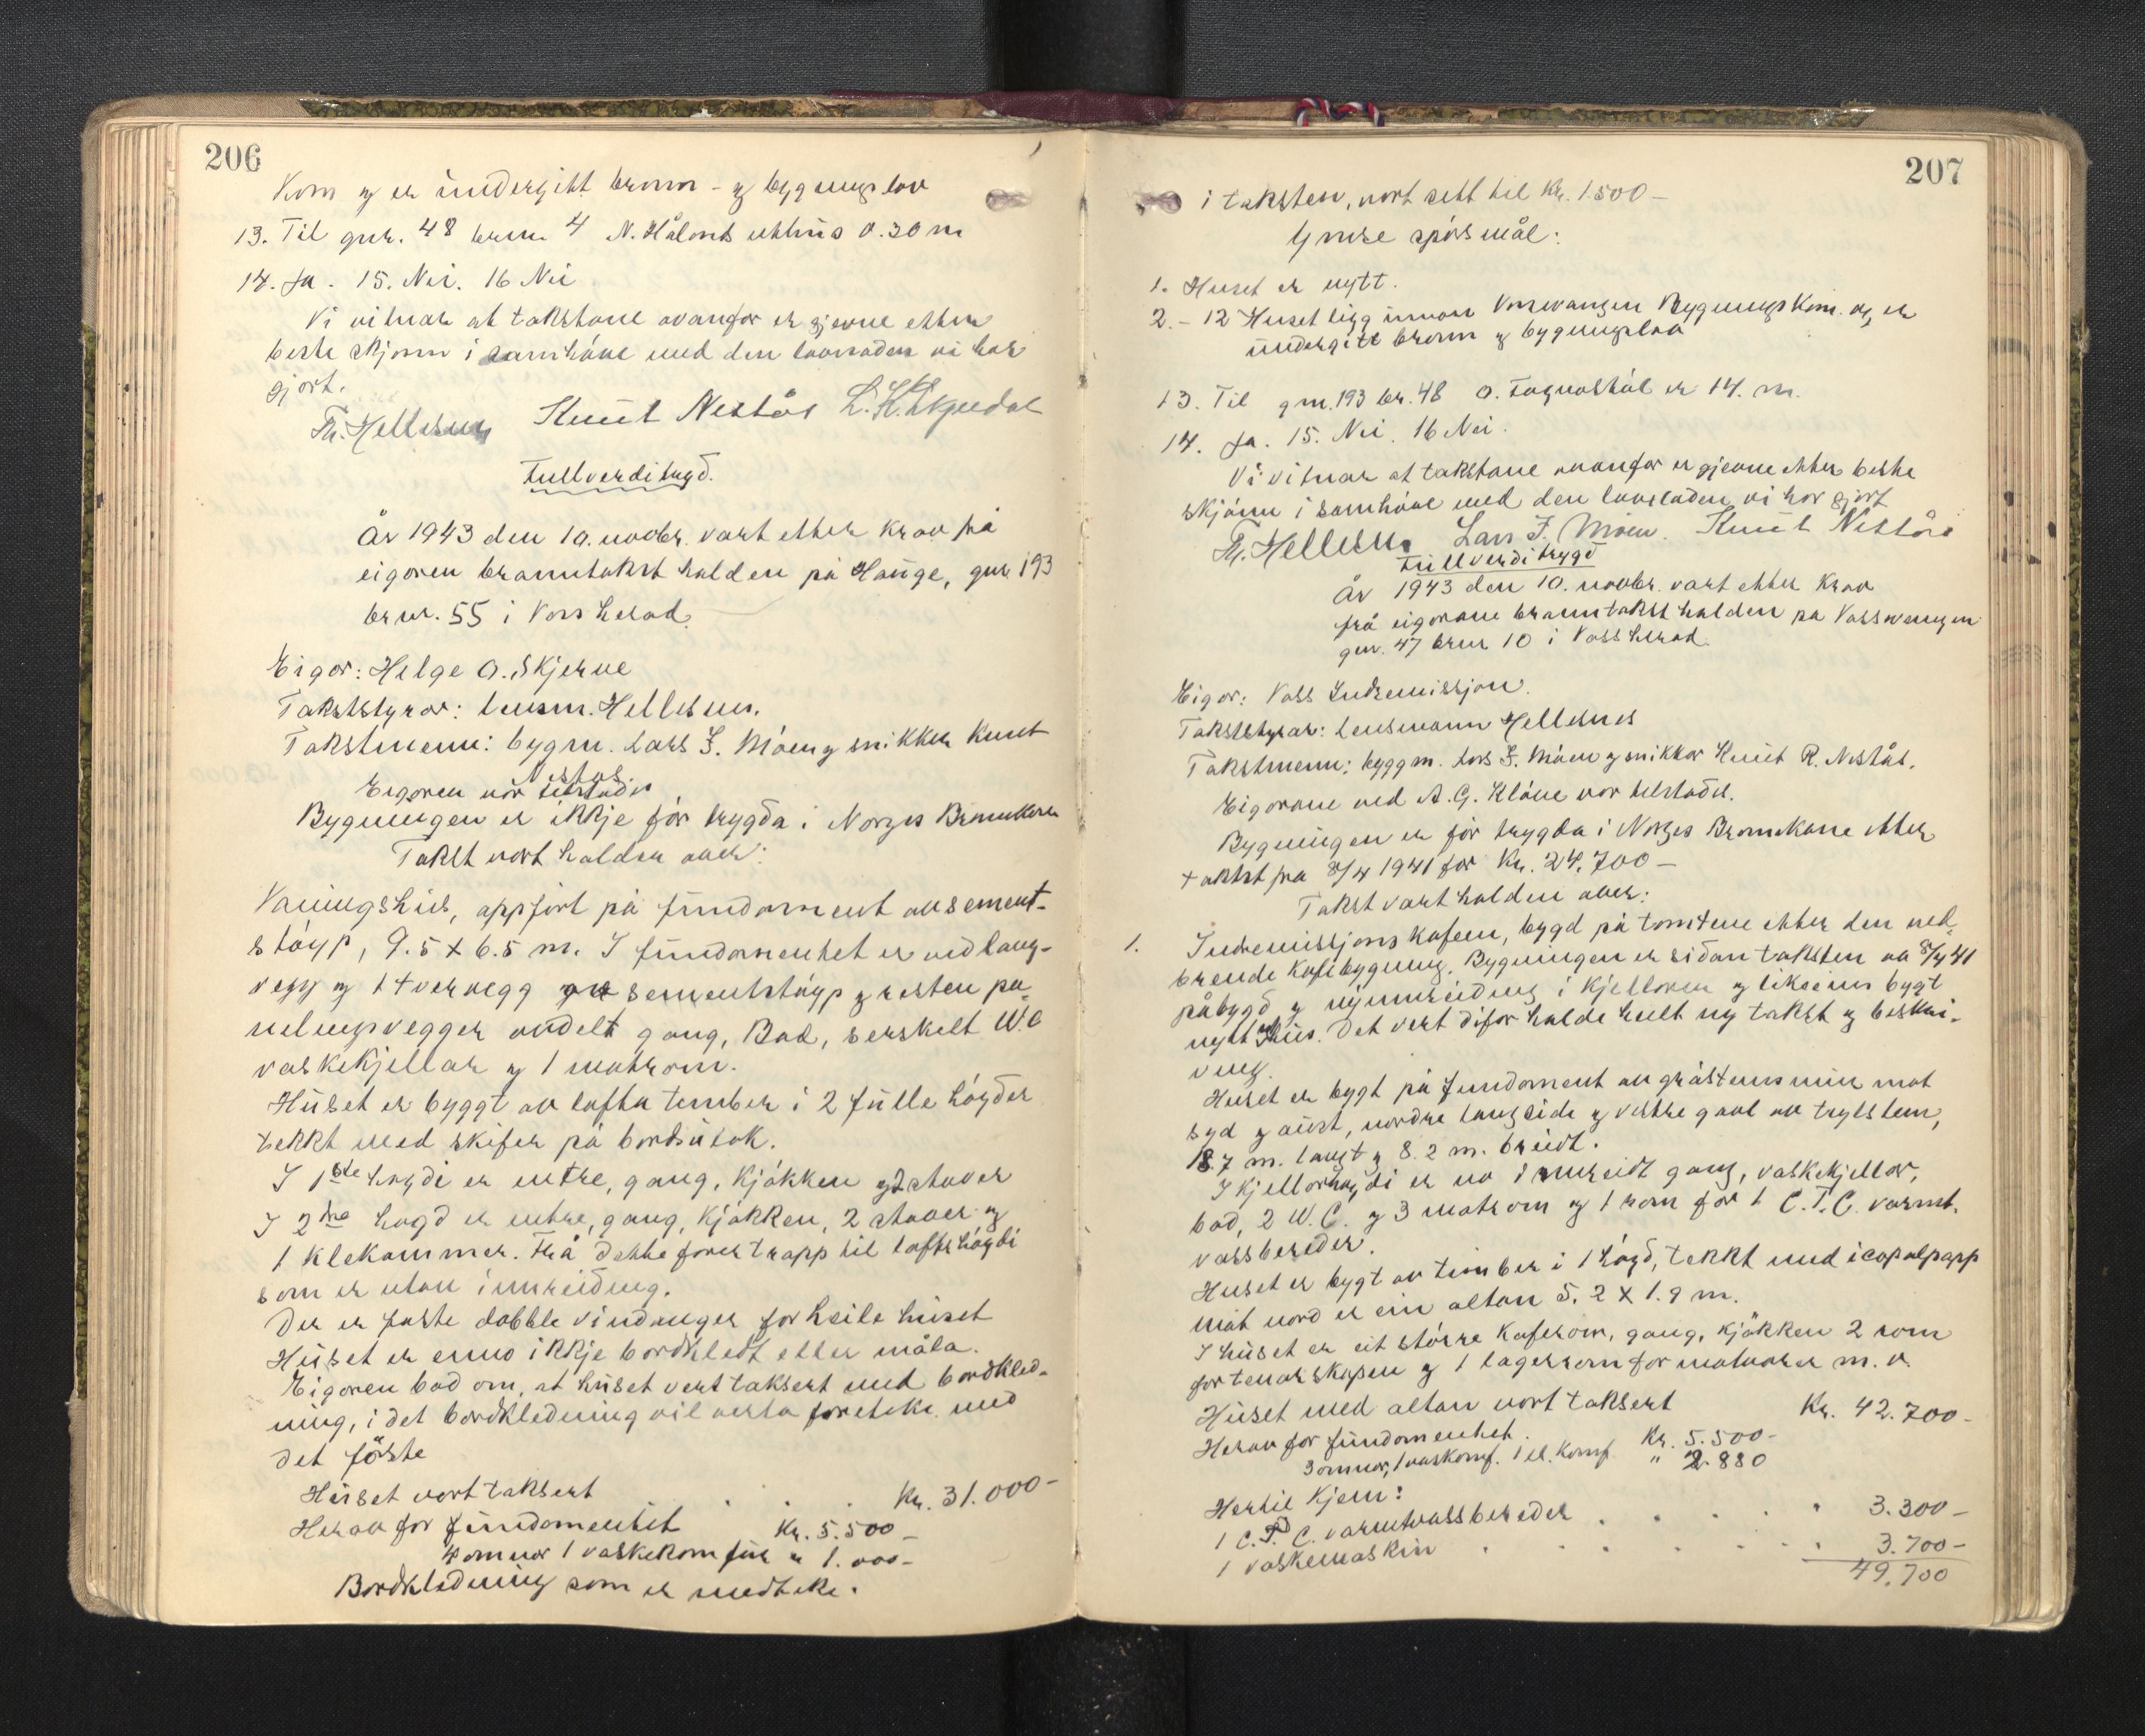 206
Kom og er undergitt brann- og bygningslov
13. Til gnr. 48 brnr. 4 N. Hålands uthus 0.30 m
14. Ja. 15. Nei. 16 Nei
Vi vitnar at takstane ovanfor er gjevne etter
beste skjønn i samhøve med den lovnaden vi har
gjort.
Th. Hellesnes Knut Nestås
Fullverditrygd.
År 1943 den 10. novbr. vart etter krav frå
eigaren branntakst halden på Hauge, gnr 193
brnr. 55 i Voss herad.
Eigar: Helge O. Skjerve
Takststyrar: lensm. Hellesnes.
Takstmenn: bygm. Lars J. Möen og snikker Knut
Nestås.
Eigaren var tilstades
Bygningen er ikkje før trygda i Norges Brannkasse
Takst vart halden over:
Vaningshus, oppført på fundament av sement-
støyp, 9.5 x 6.5 m. I fundamentet er ved lang-
vegg og 1 tvervegg av sementstøyp og resten pa-
nelingsvegger avdelt gang, Bad, serskelt W.C
vaskekjellar og 1 matrom.
Huset er byggt av lafta tember i 2 fulle høgder
tekkt med skifer på bordsutak.
I 1ste høgdi er entre, gang, kjökken og 2 stover
I 2dre høgd er entre, gang, kjökken, 2 stover og
1 klekammer. Frå dette fører trapp til loftshøgdi
som er utan innreiding.
Der er faste dobble vindauger for heile huset
Huset er enno ikkje bordkledt eller måla.
Eigaren bad om, at huset vert taksert med bordkled-
ning, i det bordkledning vil verta foreteke med
det förste
Huset vart taksert . . . Kr. 31.000-
Herav for fundamentet Kr. 5.500-
4 omnar 1 vaskekomfur " 1.000-
Bordkledning som er medteke.
207
i taksten, vart sett til Kr. 1.500-
Ymse spørsmål:
1. Huset er nytt.
2.-12 Huset ligg innan Vossevangen Bygningskom. og er
undergitt brann og bygningslov
13. Til gnr. 193 br. 48 O. er 14. m.
14. Ja. 15. Nei. 16 Nei.
Vi vitnar at takstane ovanfor er gjevne etter beste
skjønn i samhøve med den lovnaden vi har gjort
Th. Hellesnes Lars J. Möen. Knut Nestås
Fullverditrygd
År 1943 den 10. novbr. vart etter krav
frå eigarane branntakst halden på Vossevangen
gnr. 47 brnr 10 i Voss herad.
Eigar: Voss Indremissjon.
Takststyrar: Lensmann Hellesnes
Takstmenn: byggm. Lars J. Möen og snikkar Knut R. Nestås.
Eigarane ved A. G. Kløve var tilstades.
Bygningen er før trygda i Norges Brannkasse etter
takst frå 8/4 1941 for Kr. 24.700-
Takst vart halden over:
1. Indremissjonskafeen, bygd på tomtene etter den ned-
brende kafebygning. Bygningen er sidan taksten av 8/4 41
påbygd og nyinnreiding i kjelleren og likeeins bygt
nytt hus. Det vert difor halde heilt ny takst og beskri-
ving.
Huset er bygt på fundament av gråsteinsmur mot
syd og aust, nordre langside og vestre gavl av teglstein,
18.7 m. langt og 8.2 m. breidt.
I kjellarhøgdi er no innreidt gang, vaskekjellar,
bad, 2 W.C. og 3 matrom og 1 rom for 1 C.T.C. varmt-
vassbereder.
Huset er bygt av timber i 1 høgd, tekkt med icopalpapp
mot nord er ein altan 5.2 x 1.9 m.
I huset er eit større kaferom, gang, kjökken 2 rom
for tenarskapen og 1 lagerrom for matvarer m.v.
Huset med altan vart taksert Kr. 42.700-
Herav for fundamentet. Kr. 5.500-
3 omnar, 1 vaskomf. 1 el. komf. " 2.880
Hertil kjem:
1 C.T.C. varmtvassbereder . . . . 3.300-
1 vaskemaskin . . . . . 3.700-
49.700